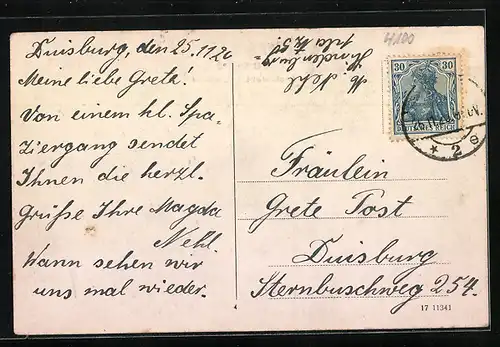 Duisburg, den 25.11.20
Meine liebe Greta.
Von einem kl. Spa-
ziergang sendet
Ihnen die herzl.
Grüße Ihre Magda
Nehl.
Wann sehen wir
uns mal wieder.
M. Nehl
Hindenburg-
4100
30 30
DEUTSCHES REICH
* 2 e
Fräulein
Grete Post
Duisburg
Sternbuschweg 254.
17 11341